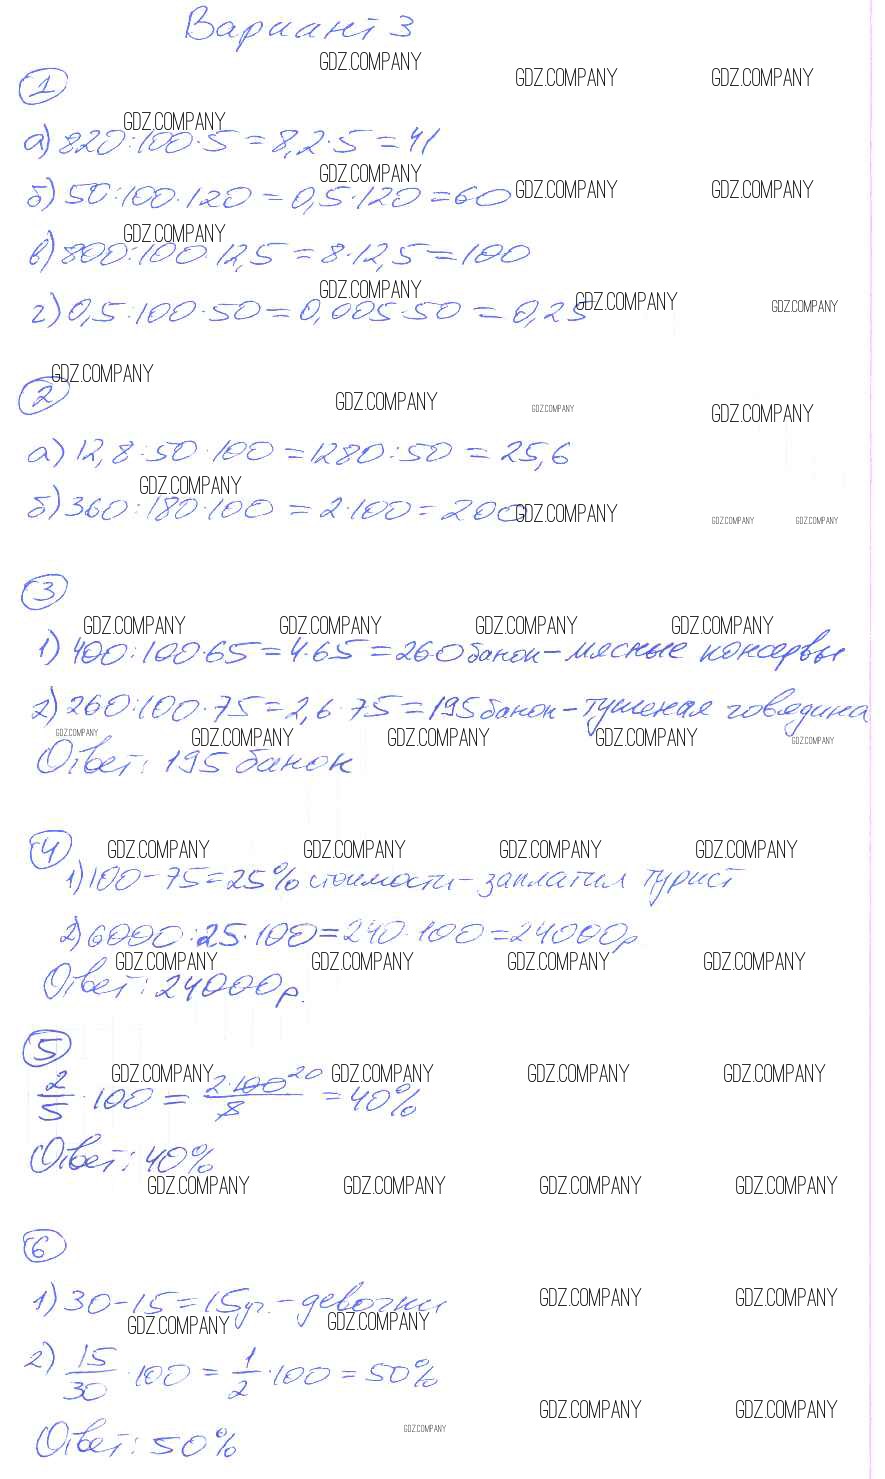 Вариант 3
GDZ.COMPANY
GDZ.COMPANY GDZ.COMPANY
1
GDZ.COMPANY
а) 820:100·5=8,2·5=41
GDZ.COMPANY
б) 50:100·120=0,5·120=60
GDZ.COMPANY GDZ.COMPANY
GDZ.COMPANY
в) 800:100·12,5=8·12,5=100
GDZ.COMPANY
GDZ.COMPANY GDZ.COMPANY
г) 0,5:100·50=0,005·50=0,25
GDZ.COMPANY
2
GDZ.COMPANY GDZ.COMPANY GDZ.COMPANY
а) 12,8:50·100=1280:50=25,6
GDZ.COMPANY
б) 360:180·100=2·100=200
GDZ.COMPANY GDZ.COMPANY GDZ.COMPANY
3
GDZ.COMPANY GDZ.COMPANY GDZ.COMPANY GDZ.COMPANY
1) 400:100·65=4·65=260 банок – мясные консервы
2) 260:100·75=2,6·75=195 банок – тушеная говядина
GDZ.COMPANY GDZ.COMPANY GDZ.COMPANY GDZ.COMPANY GDZ.COMPANY
Ответ: 195 банок
4
GDZ.COMPANY GDZ.COMPANY GDZ.COMPANY GDZ.COMPANY
1) 100-75=25% стоимости – заплатил турист
2) 6000:25·100=240·100=24000р
GDZ.COMPANY GDZ.COMPANY GDZ.COMPANY GDZ.COMPANY
Ответ: 24000р.
5
GDZ.COMPANY GDZ.COMPANY GDZ.COMPANY GDZ.COMPANY
2/5 · 100 = 2·100 20/5 = 40%
Ответ: 40%
GDZ.COMPANY GDZ.COMPANY GDZ.COMPANY GDZ.COMPANY
6
GDZ.COMPANY GDZ.COMPANY
1) 30-15=15уч. – девочки
GDZ.COMPANY GDZ.COMPANY
2) 15/30 · 100 = 1/2 · 100 = 50%
GDZ.COMPANY GDZ.COMPANY
GDZ.COMPANY
Ответ: 50%